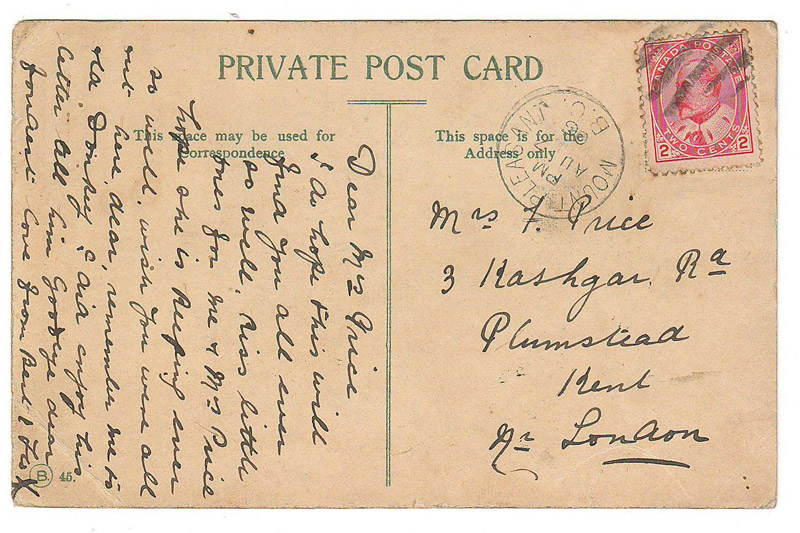 PRIVATE POST CARD
This space may be used for
Correspondence
This space is for the
Address only
CANADA POSTAGE
2 TWO CENTS 2
MOUNT PLEASANT
PM
AU
B.C.
Mrs F. Price
3 Kashgar Rd
Plumstead
Kent
Nr London
Dear Mrs Price
I do hope this will
find you all ever
so well, kiss little
for me & Mrs Price
hope she is keeping ever
so well, wish you were all
out here, dear, remember me to
old Donkey, I did enjoy his
letter all him Goodbye dear
fondest love from Bert
B. 45.